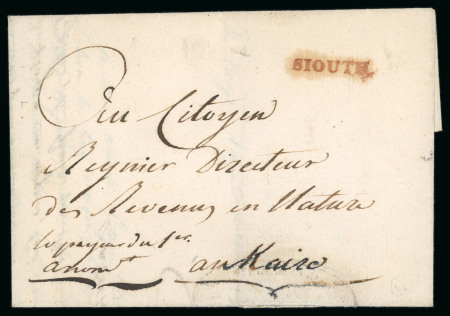 SIOUTH
Au Citoyen
Reynier Directeur
des Revenus en Nature
le payeur du 1er
arrond.t au Kaire